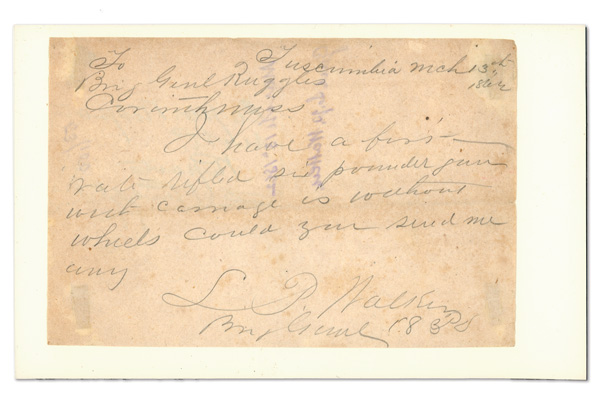 To Tuscumbia Mch 13th
1862
Brig Genl Ruggles
Corinth Miss
I have a first
rate rifled six pounder gun
with carriage is without
wheels could you send me
any
L P Walker
Brig Genl